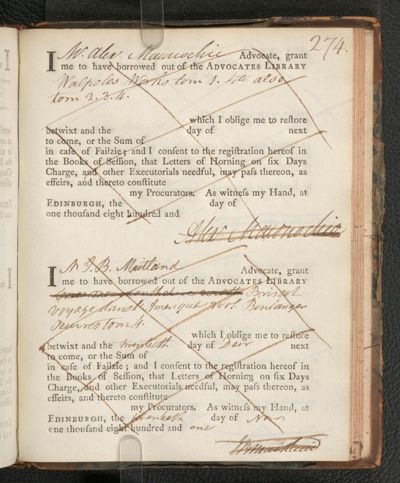 274.
I Mr. Alexr. Maconochie Advocate, grant
me to have borrowed out of the ADVOCATES LIBRARY
Walpoles Works tom 1. 4to also
tom 2. 3. 4.
which I oblige me to reſtore
betwixt and the day of next
to come, or the Sum of
in caſe of Failzie; and I conſent to the regiſtration hereof in
the Books of Seſſion, that Letters of Horning on ſix Days
Charge, and other Executorials needful, may paſs thereon, as
effeirs, and thereto conſtitute
my Procurators. As witneſs my Hand, at
EDINBURGH, the day of
one thouſand eight hundred and
Alexr Maconochie
I J. B. Maitland Advocate, grant
me to have borrowed out of the ADVOCATES LIBRARY
Brissot
voyage dans l'Amerique Boulanger
Oeuvres tom 4.
which I oblige me to reſtore
betwixt and the twentieth day of Decr next
to come, or the Sum of
in caſe of Failzie; and I conſent to the regiſtration hereof in
the Books of Seſſion, that Letters of Horning on ſix Days
Charge, and other Executorials needful, may paſs thereon, as
effeirs, and thereto conſtitute
my Procurators. As witneſs my Hand, at
EDINBURGH, the twentieth day of Novr
one thouſand eight hundred and one